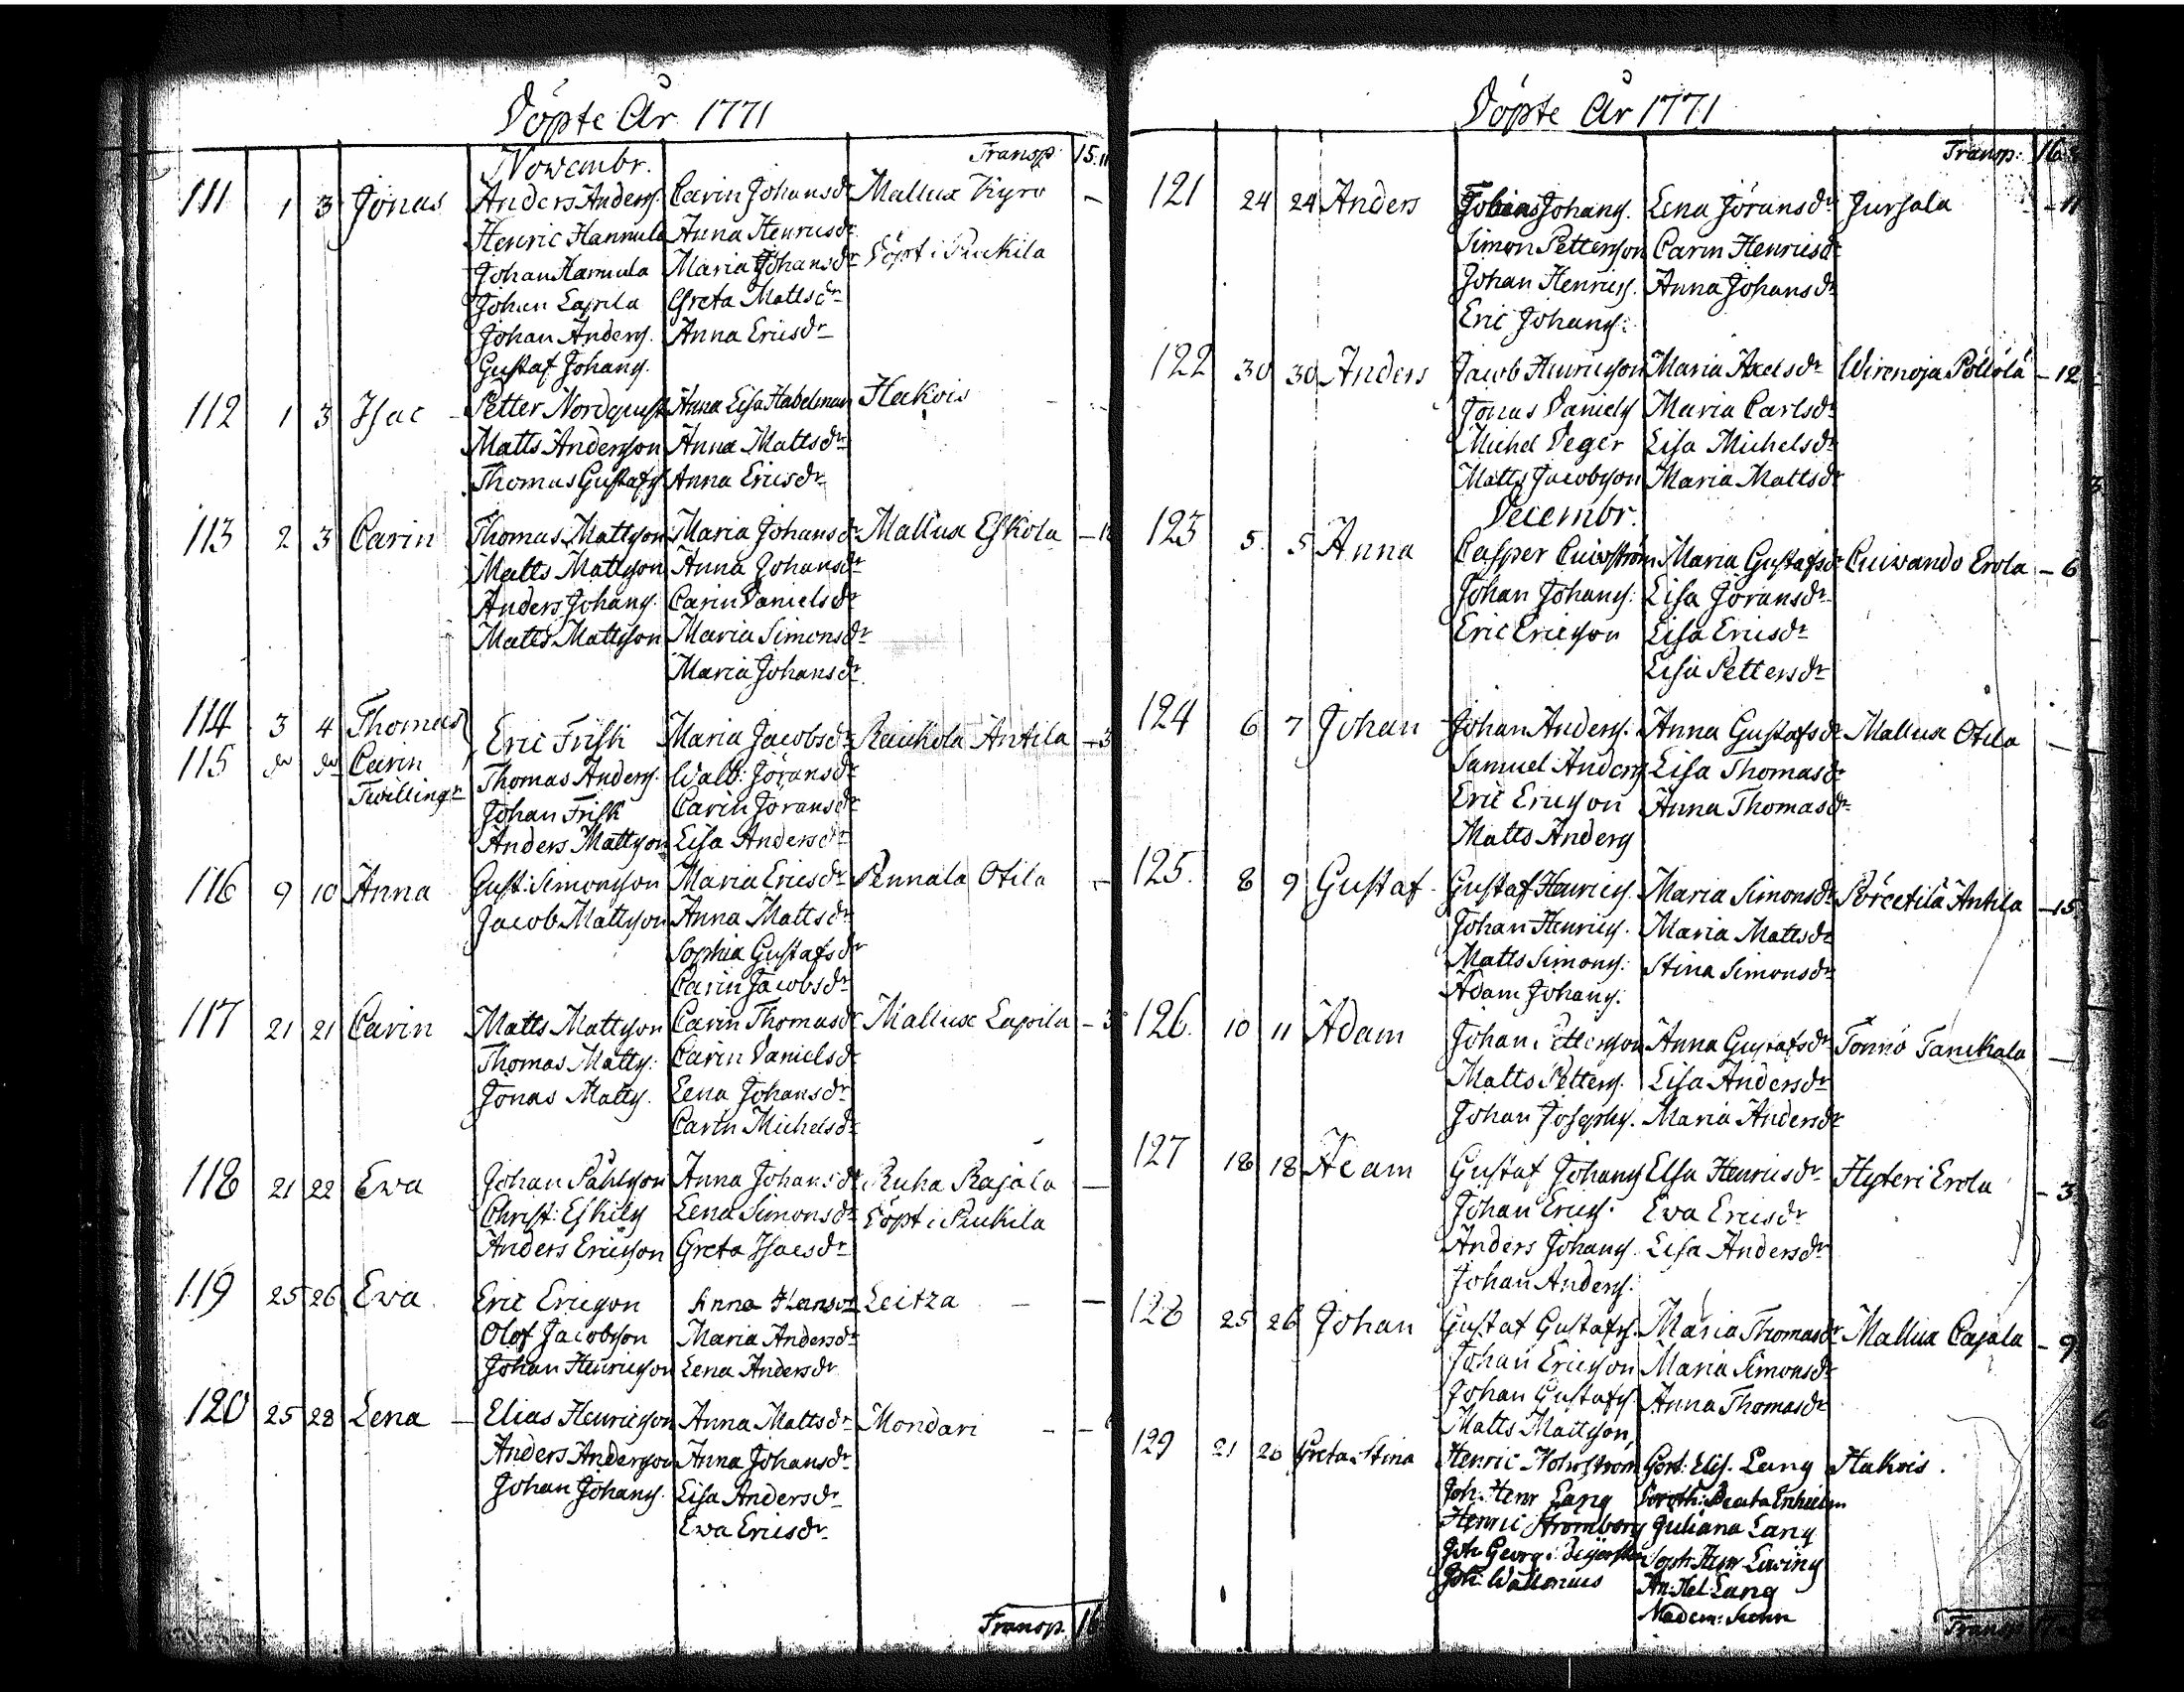 Döpte År 1771
Novembr. Transp: 15
111 1 3 Jonas Anders Anderss. Carin Johansdr Mallux Kyro –
Henric Hannula Anna Henricsdr
Johan Hannula Maria Johansdr Döpt i Puckila
Johan Lapila Greta Mattsdr
Johan Anderss. Anna Ericsdr
Gustaf Johanss.
112 1 3 Isac Petter Nordquist Anna Lisa Habelman Hakois
Matts Andersson Anna Mattsdr
Thomas Gustafss Anna Ericsdr
113 2 3 Carin Thomas Mattsson Maria Johansdr Mallux Eskola
Matts Mattsson Anna Johansdr
Anders Johanss. Carin Danielsdr
Matts Mattsson Maria Simonsdr
Maria Johansdr
114 3 4 Thomas Eric Frisk Maria Jacobsdr Raickola Antila – 3
115 do do Carin Thomas Anderss. Walb: Jöransdr
Twillingr Johan Frisk Carin Jöransdr
Anders Mattsson Lisa Andersdr
116 9 10 Anna Gust: Simonsson Maria Ericsdr Pennala Otila –
Jacob Mattsson Anna Mattsdr
Sophia Gustafsdr
Carin Jacobsdr
117 21 21 Carin Matts Mattsson Carin Thomasdr Mallux Lapila – 3
Thomas Matts: Carin Danielsdr
Jonas Matts. Lena Johansdr
Carin Michelsdr
118 21 22 Ewa Johan Påhlsson Anna Johansdr Ruha Rajala –
Christ: Eskilss Lena Simonsdr Döpt i Puckila
Anders Ericsson Greta Isacsdr
119 25 26 Ewa Eric Ericsson Anna Hansdr Leitza –
Olof Jacobsson Maria Andersdr
Johan Henricsson Lena Andersdr
120 25 28 Lena – Elias Henricsson Anna Mattsdr Mondari –
Anders Andersson Anna Johansdr
Johan Johanss. Lisa Andersdr
Ewa Ericsdr
Transp. 16
Döpte År 1771
Transp: 16
121 24 24 Anders Tobias Johanss. Lena Jöransdr Jursala – 11
Simon Pettersson Carin Henricsdr
Johan Henricss. Anna Johansdr
Eric Johanss:
122 30 30 Anders Jacob Henricsson Maria Axelsdr Wirenoja Pöllölä – 12
Jonas Danielss Maria Carlsdr
Michel Deger Lisa Michelsdr
Matts Jacobsson Maria Mattsdr
Decembr.
123 5 5 Anna Casper Cuivström Maria Gustafsdr Cuivando Erola – 6
Johan Johanss: Lisa Jöransdr
Eric Ericsson Lisa Ericsdr
Lisa Pettersdr
124 6 7 Johan Johan Anderss. Anna Gustafsdr Mallux Otila –
Samuel Anderss Lisa Thomasdr
Eric Ericsson Anna Thomasdr
Matts Anderss
125. 8 9 Gustaf Gustaf Henricss. Maria Simonsdr Sörcetilä Antila – 15
Johan Henricss. Maria Mattsdr
Matts Simonss: Stina Simonsdr
Adam Johanss.
126. 10 11 Adam Johan Pettersson Anna Gustafsdr Tönnö Tanckala –
Matts Petterss. Lisa Andersdr
Johan Josephss. Maria Andersdr
127 18 18 Adam Gustaf Johanss Elsa Henricsdr Hyteri Erola – 3
Johan Ericss. Ewa Ericsdr
Anders Johanss. Lisa Andersdr
Johan Anderss.
128 25 26 Johan Gustaf Gustafss. Maria Thomasdr Mallux Cajala – 9
Johan Ericsson Maria Simonsdr
Johan Gustafss. Anna Thomasdr
Matts Mattsson
129 21 26 Greta Stina Henric Holmström Gert: Elis. Lang Hakois.
Joh: Henr Lang Doroth: Beata
Henric Strömberg Juliana Lang
Joh: Georg: Soph: Henr
Joh: Wallenius An: Hel: Lang
Madem:
Transp